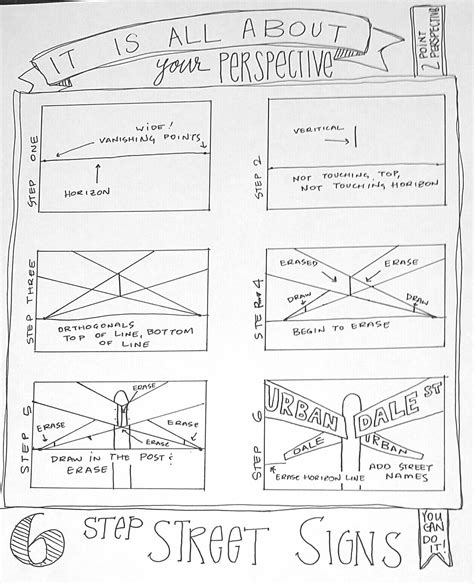 IT IS ALL ABOUT
your PERSPECTIVE
2 POINT
PERSPECTIVE
STEP ONE
WIDE!
VANISHING POINTS
HORIZON
STEP 2
VERITICAL
NOT TOUCHING TOP,
NOT TOUCHING HORIZON
STEP THREE
ORTHOGONALS
TOP OF LINE, BOTTOM
OF LINE
STEP 4
ERASED
ERASE
DRAW
DRAW
BEGIN TO ERASE
STEP 5
ERASE
ERASE
ERASE
ERASE
DRAW IN THE POST &
ERASE
STEP 6
URBAN
DALE ST
DALE
URBAN
ERASE HORIZON LINE
ADD STREET
NAMES
6 STEP STREET SIGNS
YOU
CAN
DO
IT!